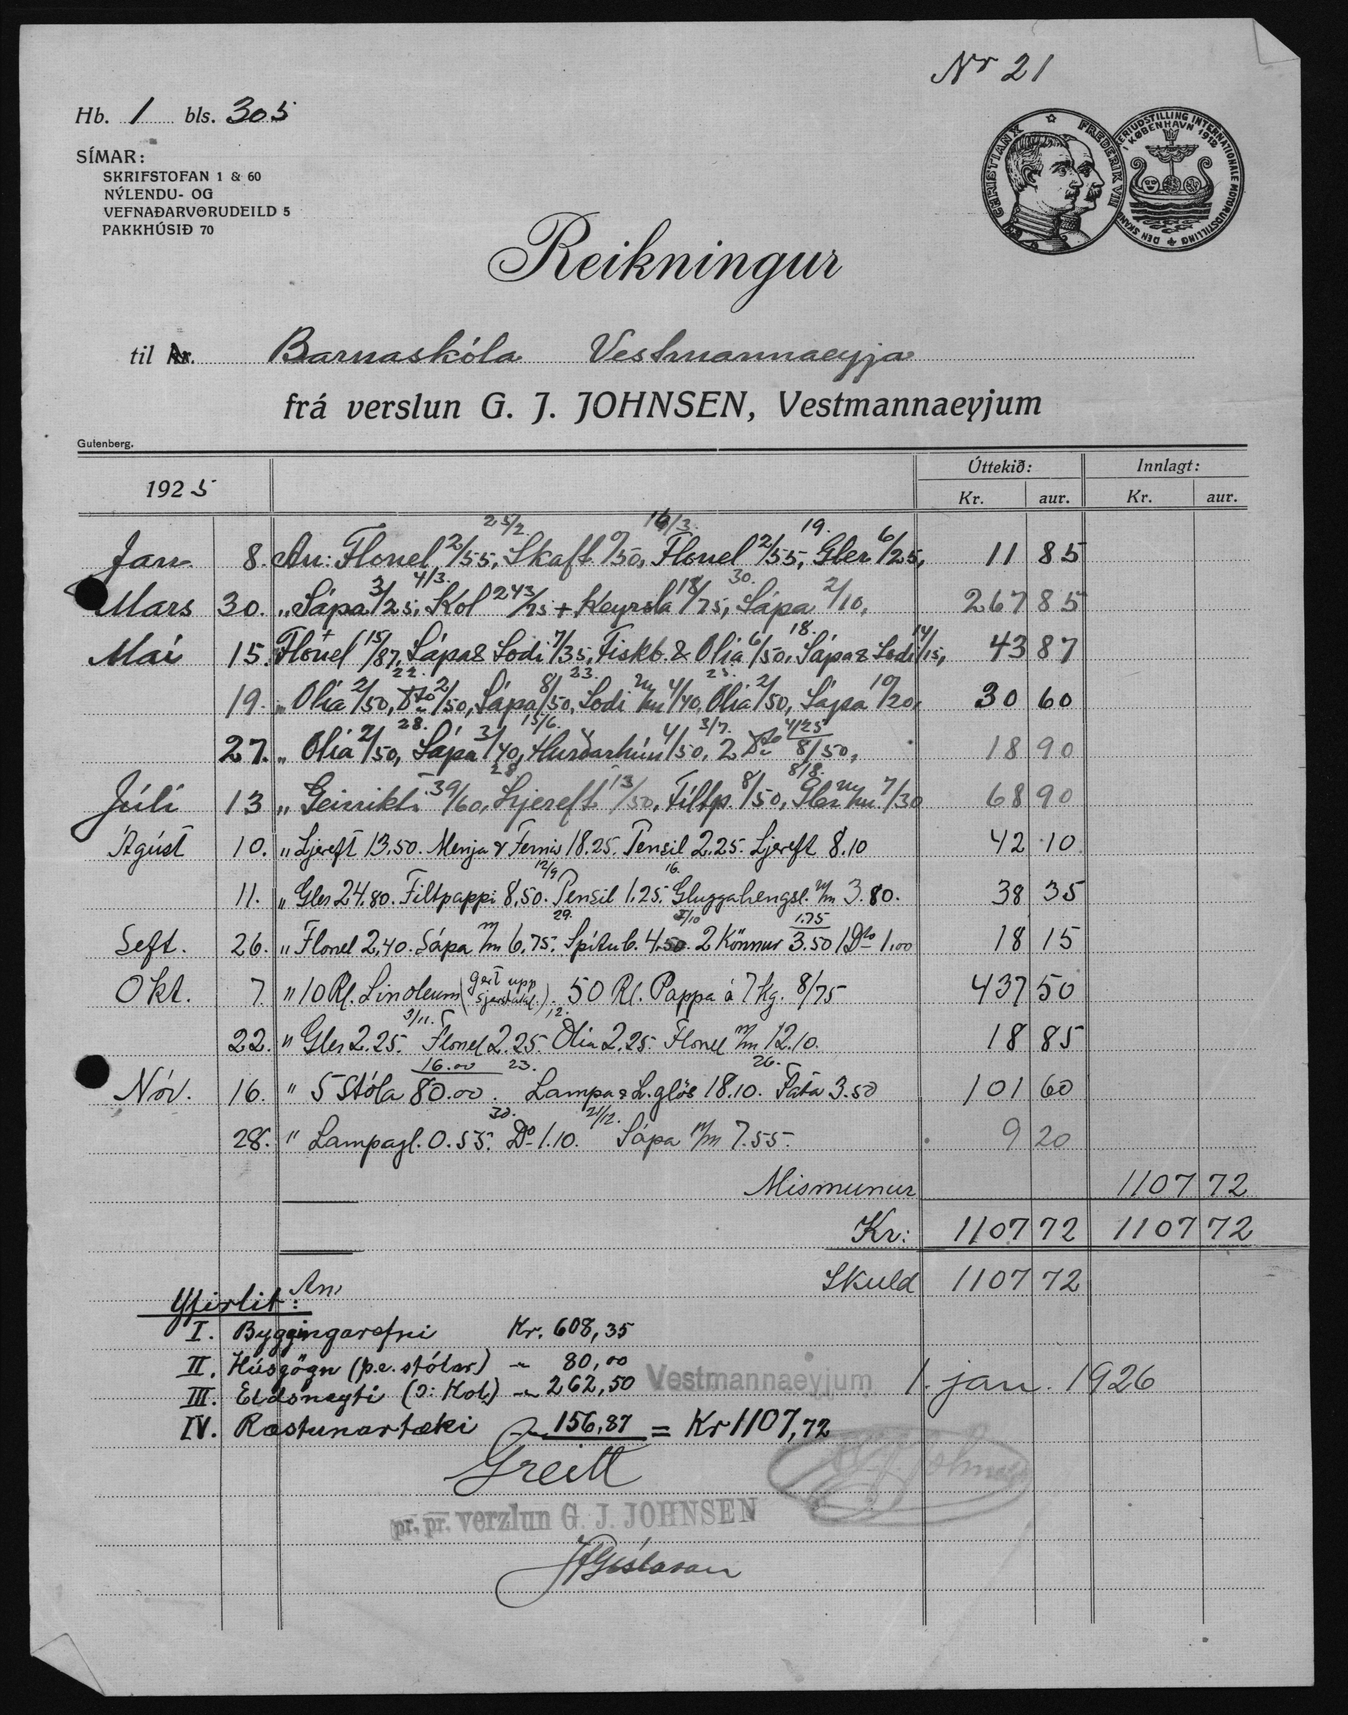 Nr 21
Hb. 1 bls. 305
SÍMAR:
SKRIFSTOFAN 1 & 60
NÝLENDU- OG
VEFNAÐARVÖRUDEILD 5
PAKKHÚSIÐ 70
CHRISTIAN X FREDERIK VIII
INTERNATIONALE MOTORUDSTILLING I KØBENHAVN 1912
Reikningur
til hr. Barnaskóla Vestmannaeyja
frá verslun G. J. JOHNSEN, Vestmannaeyjum
Gutenberg.
1925 Úttekið: Innlagt:
Kr. aur. Kr. aur.
25/2 19/3 19.
Jan 8. An: Flonel 2/55, Skaft 0/50, Flonel 2/55, Gler 6/25, 11 85
4/3. 30.
Mars 30. „ Sápa 3/25, Kol 243/75 + Keyrsla 18/75, Sápa 2/10, 267 85
18.
Maí 15. Flonel 15/87, Sápa & Sodi 7/35, Fiskb. & Olía 6/50, Sápa & Sodi 14/15, 43 87
22. 23. 25.
19. „ Olía 2/50, Do 2/50, Sápa 8/50, Sodi m/m 4/40, Olía 2/50, Sápa 10/20, 30 60
28. 15/6. 3/7. 4/25
27. „ Olía 2/50, Sápa 3/40, Hurðarhún 4/50, 2 Do 8/50, 18 90
28. 8/8.
Júlí 13 „ 39/60, Ljereft 13/50, Filtp. 8/50, Gler m/m 7/30 68 90
Ágúst 10. „ Ljereft 13.50. Menja & Fernis 18.25. Pensil 2.25 Ljereft 8.10 42 10
12/9 16.
11. „ Gler 24.80. Filtpappi 8.50. Pensil 1.25. Gluggahengsl. m/m 3.80. 38 35
29. 5/10 1.75
Seft. 26. „ Flonel 2,40. Sápa m/m 6.75. Spítub. 4.50. 2 Könnur 3.50 1 Do 1.00 18 15
Okt. 7. „ 10 Rl. Linoleum (gert upp ). 50 Rl. Pappa á 7 kg. 8/75 437 50
3/11. 12.
22. „ Gler 2.25. Flonel 2.25. Olía 2.25. Flonel m/m 12.10. 18 85
16.00 23. 26.
Nóv. 16. „ 5 Stóla 80.00. Lampa & L.glös 18.10. Fata 3.50 101 60
30. 21/12.
28. „ Lampagl. 0.55. Do 1.10. Sápa m/m 7.55. 9 20
Mismunur 1107 72
Kr: 1107 72 1107 72
An Skuld 1107 72
Yfirlit:
I. Byggingarefni Kr. 608,35
II. Húsgögn (þ.e. stólar) – 80,00
III. Eldsneyti (ɔ: Kol) – 262,50
Vestmannaeyjum 1. jan. 1926
IV. Ræstunartæki – 156,87 = Kr 1107,72
Greitt
G. J. Johnsen
pr. pr. verzlun G. J. JOHNSEN
JGíslason